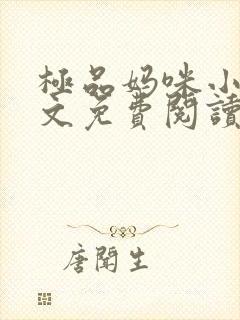 極品妈咪小
文免費閱讀
唐聞生